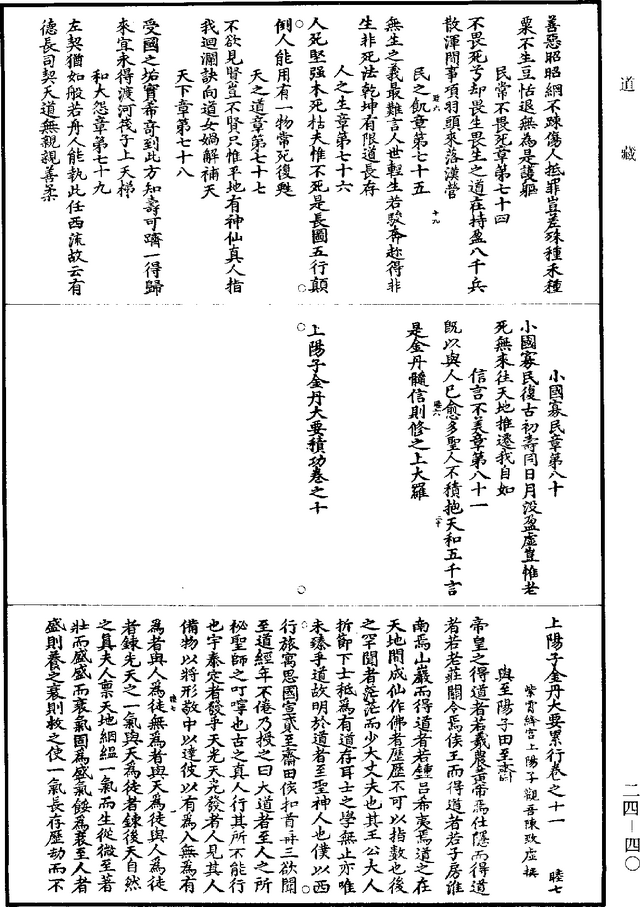 道藏
善惡昭昭網不踈傷人抵罪豈差殊種禾種
粟不生豆怡退無為是護軀
民常不畏死章第七十四
不畏死兮却畏生畏生之道在持盈八千兵
散渾閑事項羽頭來落漢營
民之飢章第七十五
無生之義最難言人世輕生若駿奔趂得非
生非死法乾坤有限道長存
人之生章第七十六
人死堅强木死枯夫惟不死是長圖五行顛
倒人能用有一物常死復甦
天之道章第七十七
不欲見賢豈不賢只惟平地有神仙真人指
我迴瀾訣向道女媧解補天
天下章第七十八
受國之垢實希奇到此方知壽可躋一得歸
來宜永得渡河筏子上天梯
和大怨章第七十九
左契猶如般若舟人能執此任西流故云有
德長司契天道無親親善柔
小國寡民章第八十
小國寡民復古初壽同日月没盈虛豈惟老
死無來往天地推遷我自如
信言不美章第八十一
既以與人已愈多聖人不積抱天和五千言
是金丹髓信則修之上大羅
上陽子金丹大要積功卷之十
上陽子金丹大要累行卷之十一 睦七
紫霄絳宮上陽子觀吾陳致虛撰
與至陽子田至齋
帝皇之得道者若羲農黃帝焉仕隱而得道
者若老莊關令焉侯王而得道者若子房淮
南焉山巖而得道者若鍾呂希夷焉道之在
天地間成仙作佛者歷歷不可以指數也後
之罕聞者茫茫而少大丈夫也其王公大人
折節下士秪為有道存耳士之學無止亦唯
未臻乎道故明於道者至聖神人也僕以西
行旅寓思國宣貳至齋田侯扣首再三欲聞
至道經年不倦乃授之曰大道者至人之所
秘聖師之叮嚀也古之真人行其所不能行
也宇泰定者發乎天光天光發者人見其人
備物以將形敬中以達彼以有為入無為有
為者與人為徒無為者與天為徒與人為徒
者鍊先天之一氣與天為徒者鍊後天自然
之真夫人禀天地絪緼一氣而生從微至著
壯而盛盛而衰氣固為盛氣餒為衰至人者
盛則養之衰則救之使一氣長存歷劫而不
二四－四〇